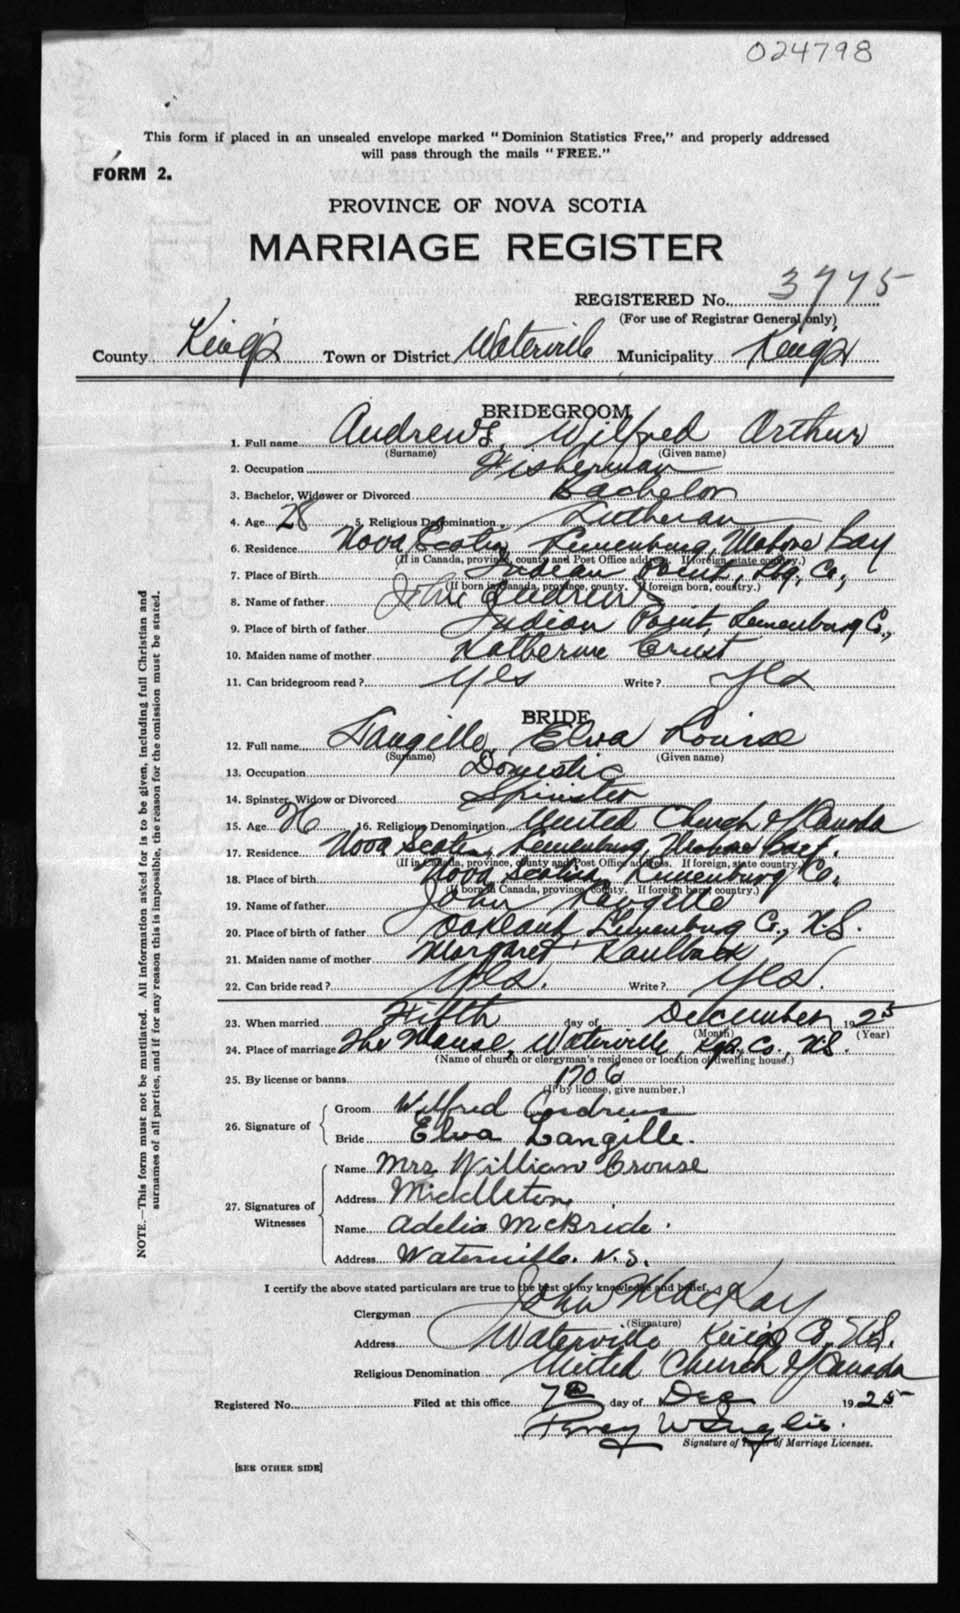 024798
This form if placed in an unsealed envelope marked "Dominion Statistics Free," and properly addressed
will pass through the mails "FREE."
FORM 2.
PROVINCE OF NOVA SCOTIA
MARRIAGE REGISTER
REGISTERED No. 3775
(For use of Registrar General only)
County King's Town or District Waterville Municipality King's
BRIDEGROOM
1. Full name Andrews, Wilfred Arthur
(Surname) (Given name)
2. Occupation Fisherman
3. Bachelor, Widower or Divorced Bachelor
4. Age 28 5. Religious Denomination Lutheran
6. Residence Nova Scotia, Lunenburg, Mahone Bay
(If in Canada, province, county and Post Office address. If foreign, state country.)
7. Place of Birth Indian Point, Co.,
(If born in Canada, province, county. If foreign born, country.)
8. Name of father John Andrews
9. Place of birth of father Indian Point, Lunenburg Co.,
10. Maiden name of mother Katherine Ernst
11. Can bridegroom read? Yes Write? Yes
BRIDE
12. Full name Langille, Elva Louise
(Surname) (Given name)
13. Occupation Domestic
14. Spinster, Widow or Divorced Spinster
15. Age 26 16. Religious Denomination United Church of Canada
17. Residence Nova Scotia, Lunenburg, Mahone Bay.
(If in Canada, province, county and Post Office address. If foreign, state country.)
18. Place of birth Nova Scotia, Lunenburg Co.,
(If born in Canada, province, county. If foreign born, country.)
19. Name of father John Langille
20. Place of birth of father Oakland, Lunenburg Co., N.S.
21. Maiden name of mother Margaret Kaulback
22. Can bride read? Yes. Write? Yes.
23. When married Fifth day of December 1925
(Month) (Year)
24. Place of marriage The Manse, Waterville, Kgs. Co., N.S.
(Name of church or clergyman's residence or location of dwelling house.)
25. By license or banns 1706
(If by license, give number.)
26. Signature of
Groom Wilfred Andrews
Bride Elva Langille.
27. Signatures of Witnesses
Name Mrs William Crouse
Address Middleton
Name Adelia McBride.
Address Waterville. N.S.
I certify the above stated particulars are true to the best of my knowledge and belief.
Clergyman John MacKay
(Signature)
Address Waterville King's Co., N.S.
Religious Denomination United Church of Canada
Registered No. Filed at this office 7th day of Dec 1925
Percy W Inglis.
Signature of Issuer of Marriage Licenses.
[SEE OTHER SIDE]
NOTE.—This form must not be mutilated. All information asked for is to be given, including full Christian and
surnames of all parties, and if for any reason this is impossible, the reason for the omission must be stated.